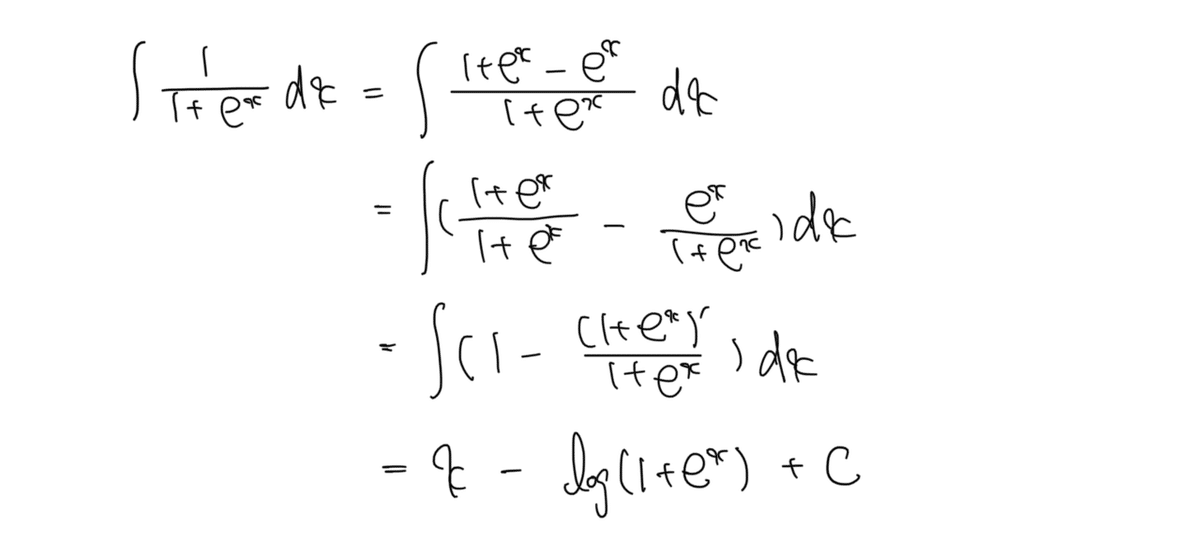 ∫ 1/(1+e^x) dx = ∫ (1+e^x − e^x)/(1+e^x) dx
= ∫( (1+e^x)/(1+e^x) − e^x/(1+e^x) ) dx
= ∫( 1 − (1+e^x)′/(1+e^x) ) dx
= x − log(1+e^x) + C